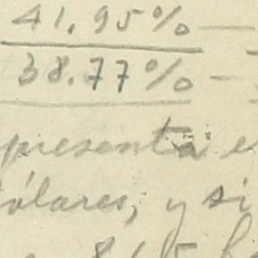 41.95% —
38.77% —
presenta e
ólares, y si